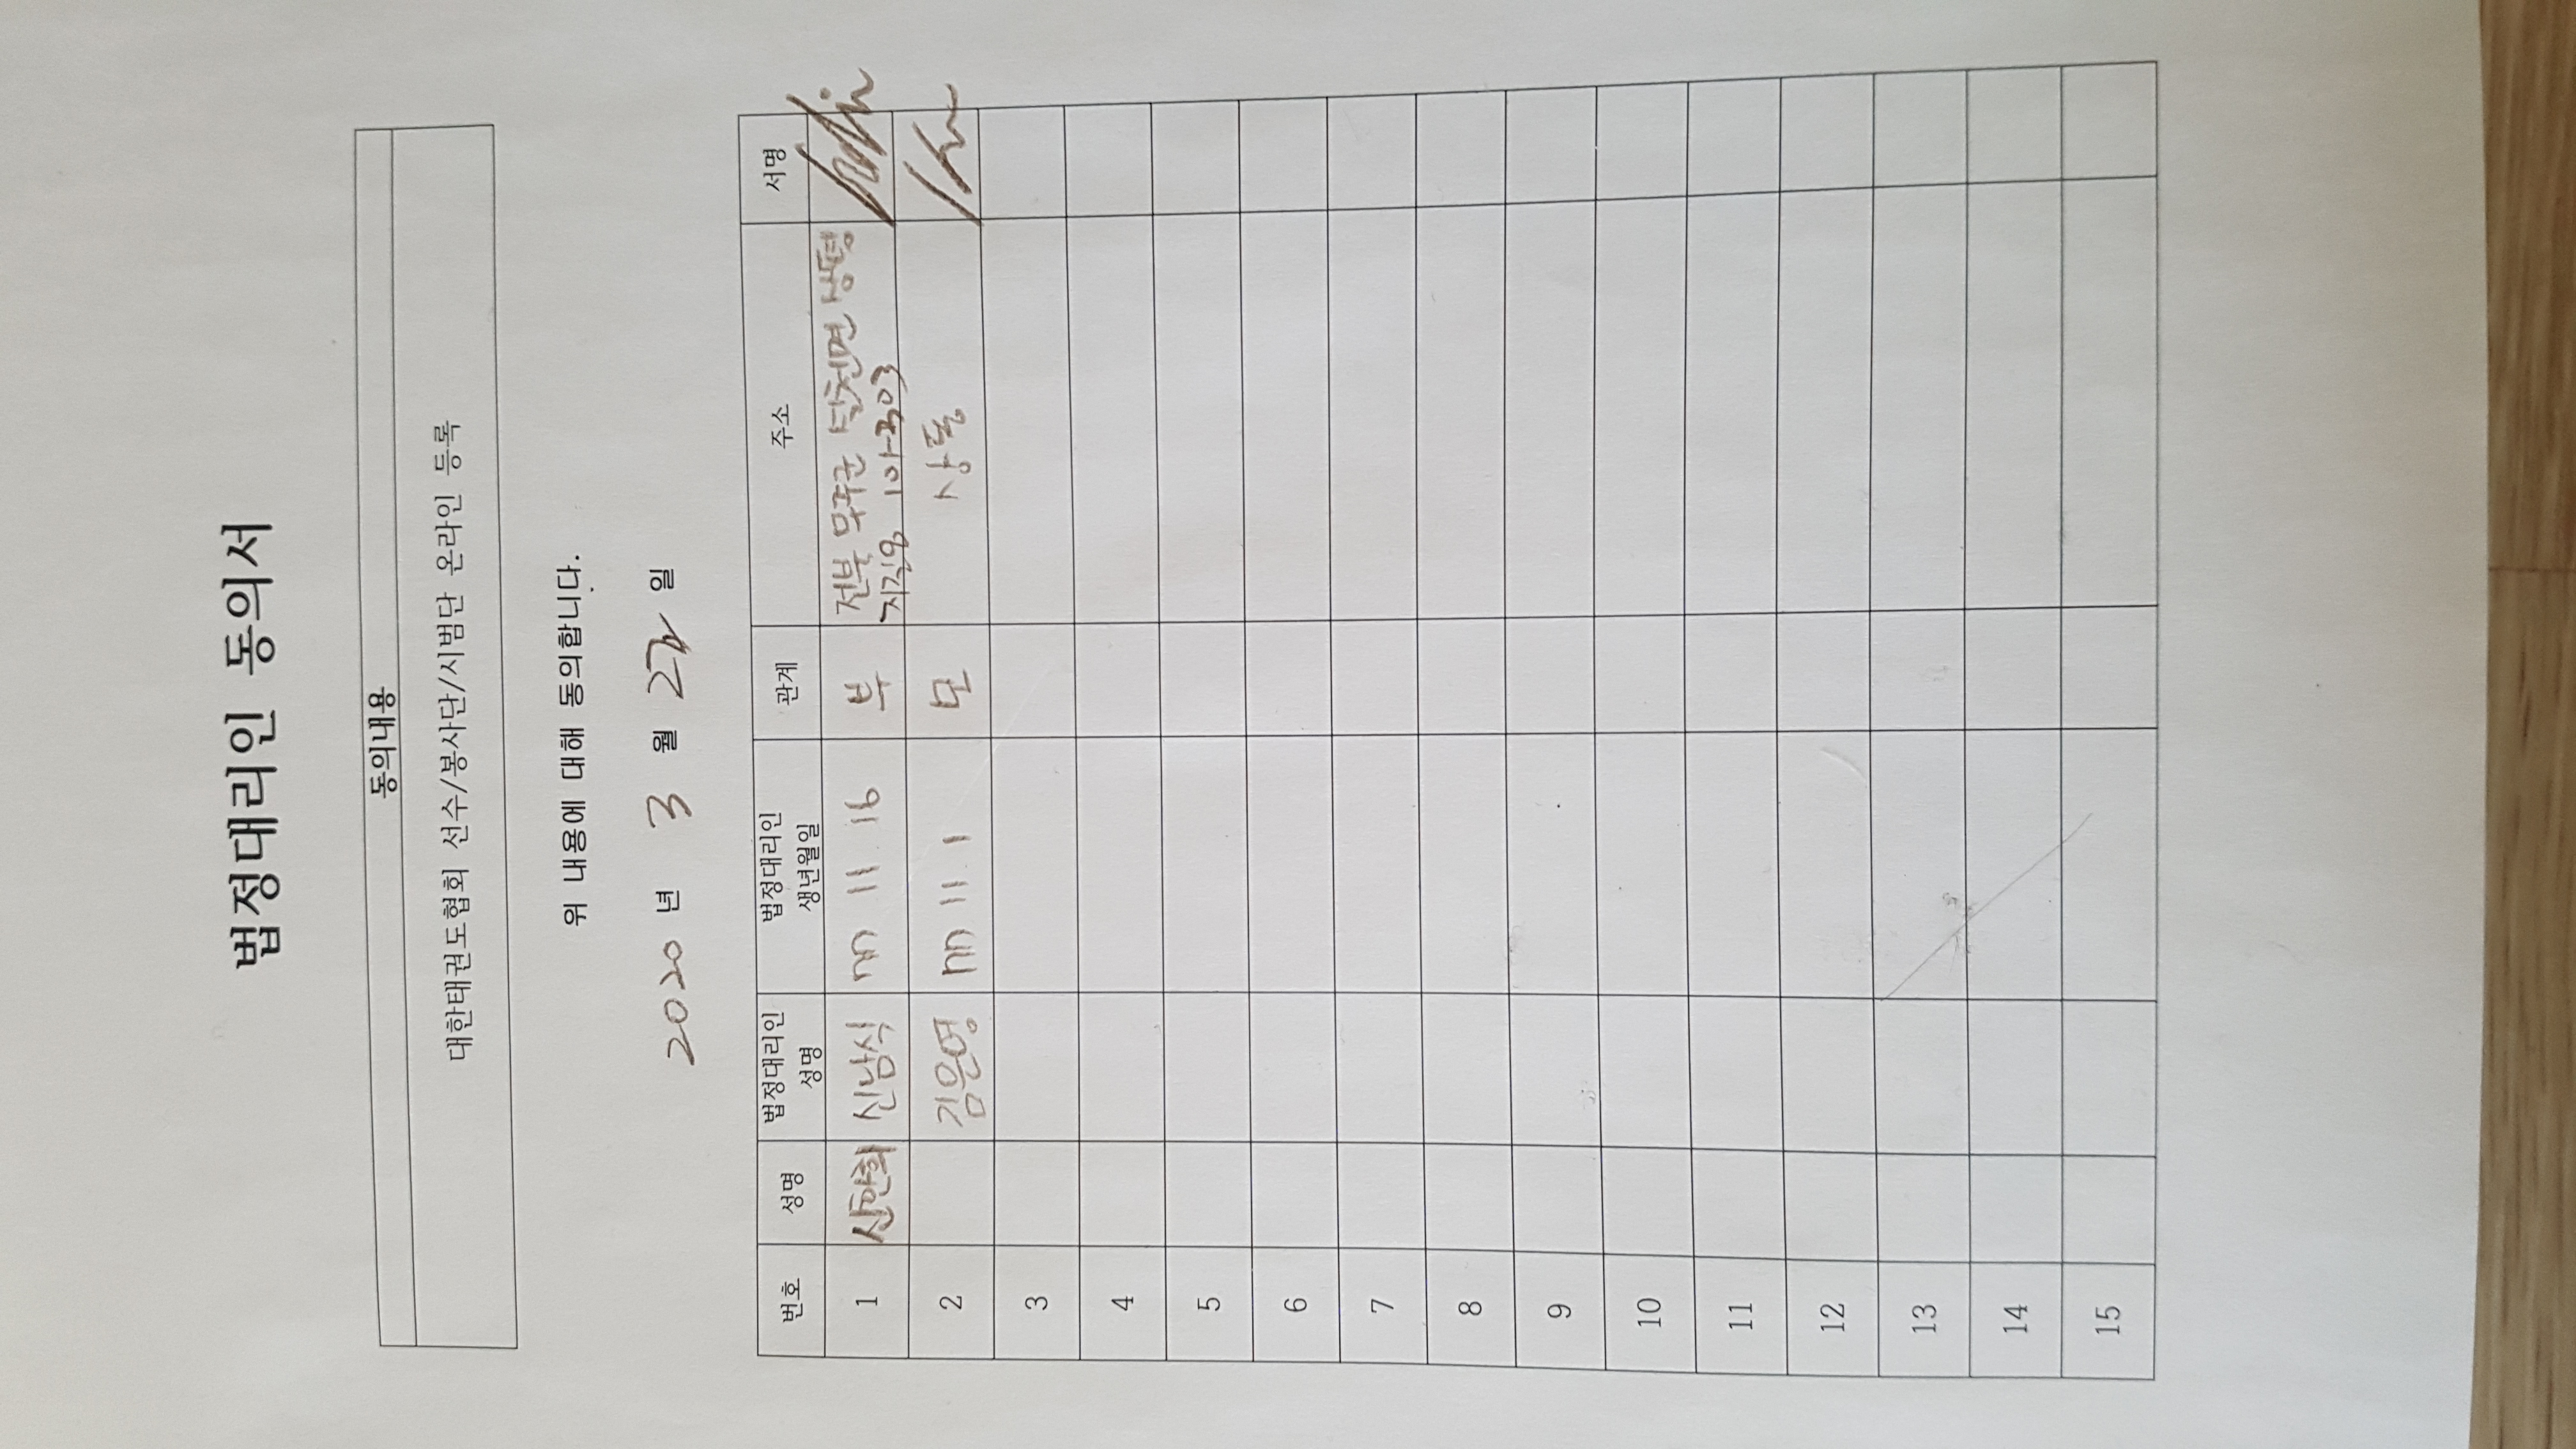 법정대리인 동의서
동의내용
대한태권도협회 선수/봉사단/시범단 온라인 등록
위 내용에 대해 동의합니다.
2020 년 3 월 22 일
번호 성명 법정대리인 성명 법정대리인 생년월일 관계 주소 서명
1 신남식 11 16 부 전북 무주군
101-303
2 김은영 11 1 모 상동
3
4
5
6
7
8
9
10
11
12
13
14
15